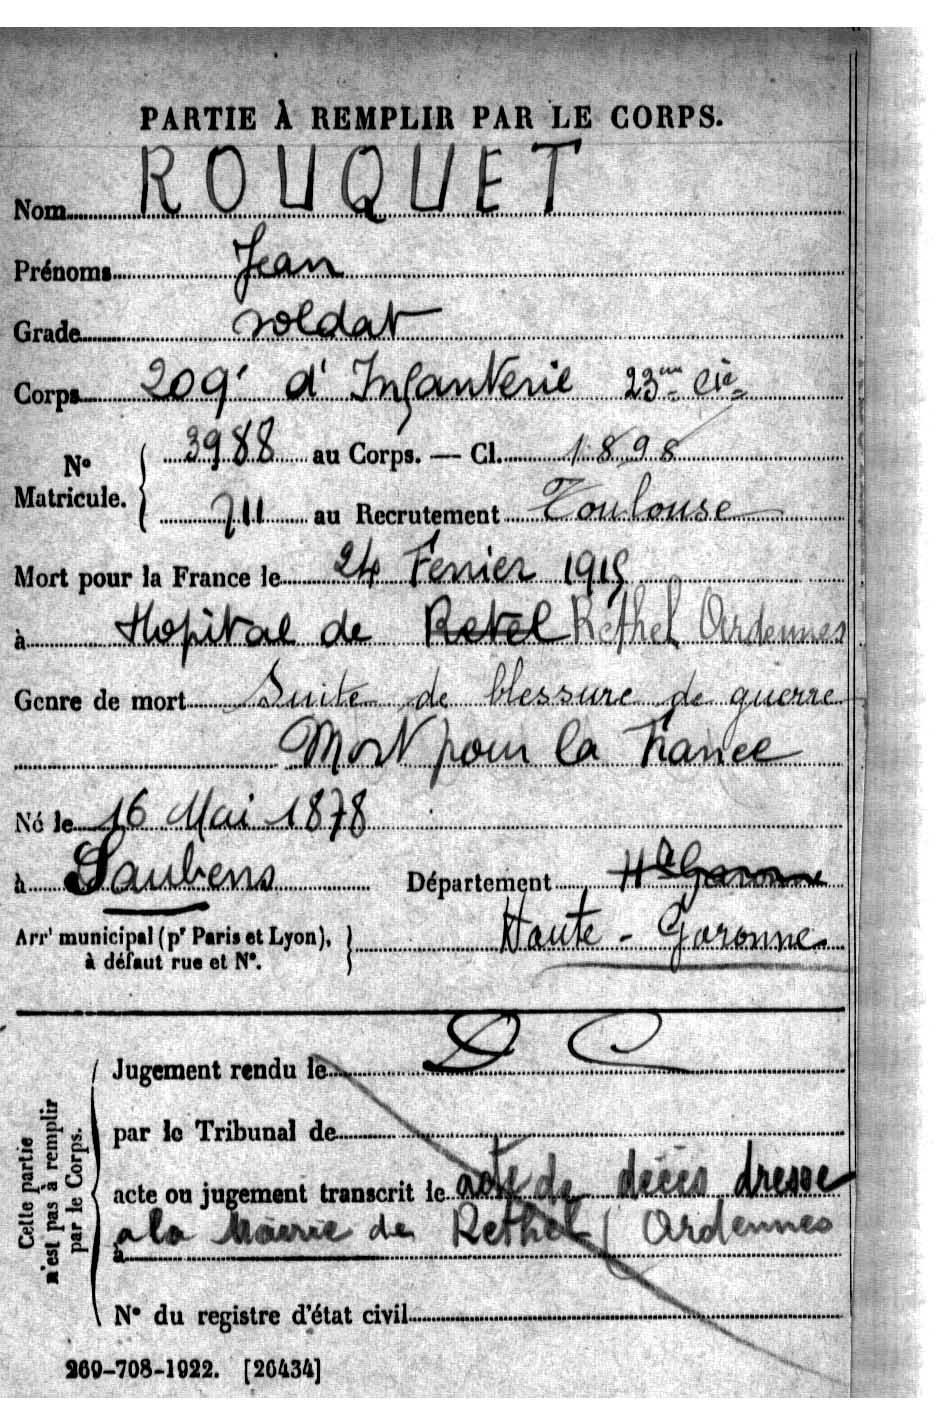 PARTIE À REMPLIR PAR LE CORPS.
Nom ROUQUET
Prénoms Jean
Grade soldat
Corps 209e d'Infanterie 23me Cie
N° Matricule. 3988 au Corps. — Cl. 1898
711 au Recrutement Toulouse
Mort pour la France le 24 Fevrier 1915
à Hopital de Retel Rethel Ardennes
Genre de mort Suite de blessure de guerre
Mort pour la France
Né le 16 Mai 1878
à Saubens Département Hte Garonne
Arrt municipal (pr Paris et Lyon), à défaut rue et N°. Haute-Garonne
Cette partie n'est pas à remplir par le Corps.
Jugement rendu le D C
par le Tribunal de
acte ou jugement transcrit le acte de décès dresse
à a la Mairie de Rethel (Ardennes
N° du registre d'état civil
269-708-1922. [26434]